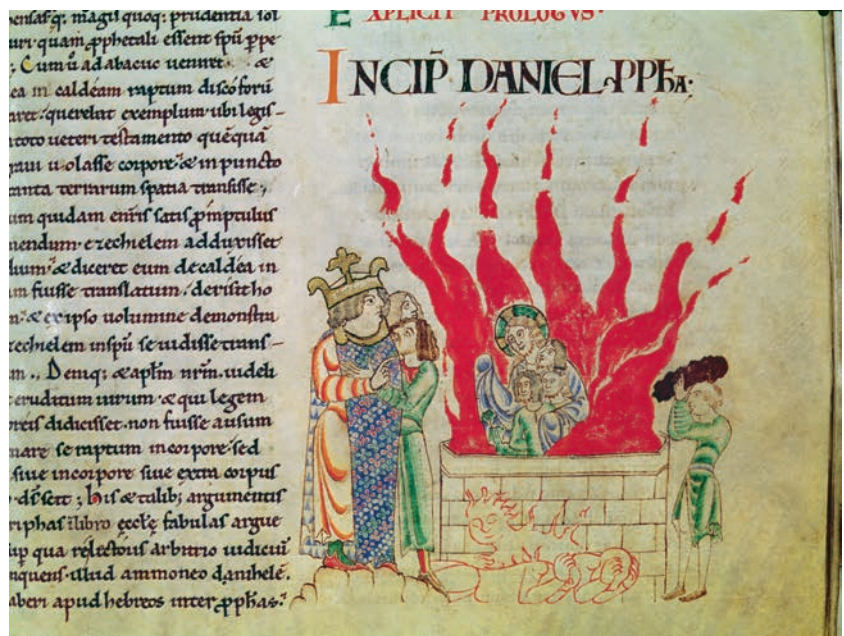 pensas q; magis quoq; prudentia sol
quam pphetali essent spu
; Cum u ad abacuc
ea in caldeam raptum discoforu
querebat exemplum ubi legis-
toto ueteri testamento quequa
graui uolasse corpore & in puncto
tanta terrarum spatia transisse;
um quidam satis pmptulus
ezechielem adduxisset
& diceret eum de caldea in
m fuisse translatum derisit ho
& ex ipso uolumine demonstra
ezechielem in spu se uidisse trans-
m. Deniq; & aplm nrm uideli
eruditum uirum & qui legem
didicisset non fuisse ausum
mare se raptum in corpore sed
siue in corpore siue extra corpus
ds scit; his & talib; argumentis
riphas i libro eccle fabulas argue
sup qua re lectoris arbitrio iudiciu
nquens illud ammoneo danihele
haberi apud hebreos inter pphas
EXPLICIT PROLOGVS·
INCIP̄ DANIEL·PPħA·